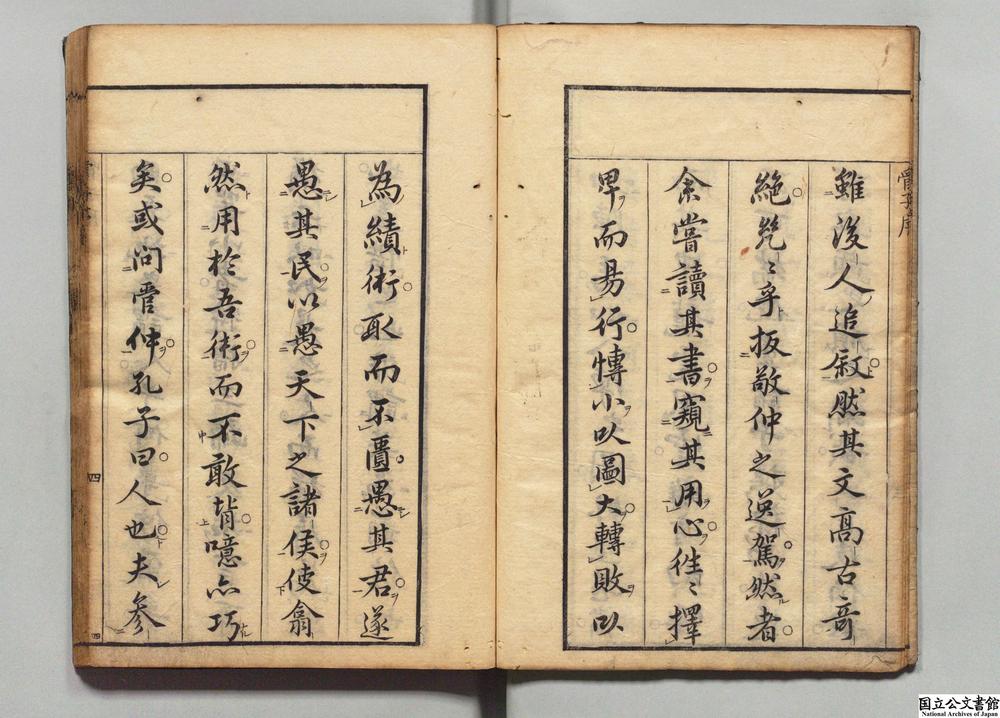 管子序
雖後人追叙然其文高古竒
絶兟〻乎扳敬仲之逸駕然者
余嘗讀其書窺其用心徃〻擇
卑而昜行慱小以圖大轉敗以
為績術取而不匱愚其君遂
愚其民以愚天下之諸侯使翕
然用於吾術而不敢背噫亦巧
矣或問管仲孔子曰人也夫參
四
国立公文書館
National Archives of Japan